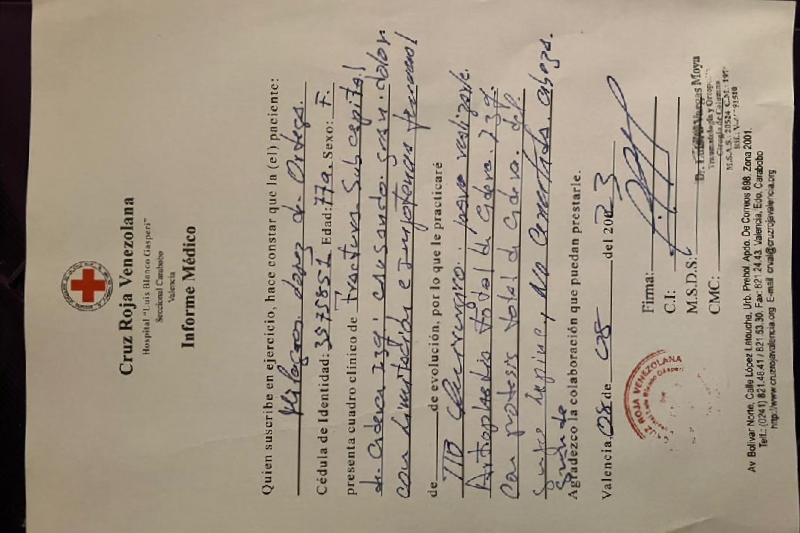 Cruz Roja Venezolana
Hospital "Luis Blanco Gasperi"
Seccional Carabobo
Valencia
Informe Médico
Quien suscribe en ejercicio, hace constar que la (el) paciente:
Milagros López de Ortega.
Cédula de Identidad: 3575851 Edad: 77a. Sexo: F.
presenta cuadro clínico de Fractura Subcapital
de Cadera Izq. causando gran dolor
con limitación e impotencia funcional
de evolución, por lo que le practicaré
TTO Quirurgico para realizarle
Artroplastia total de Cadera Izq.
Con protesis total de Cadera
Cementada Cabeza
Agradezco la colaboración que puedan prestarle.
Valencia, 08 de 08 del 2023
Firma:
C.I:
M.S.D.S:
CMC:
Vargas Moya
Traumatología y Ortopedia
M.S.A.S. 20524
CRUZ ROJA VENEZOLANA
Av. Bolívar Norte, Calle López Latouche, Urb. Prebol. Apdo. De Correos 698. Zona 2001.
Telf.: (0241) 821.48.41 / 821.53.30. Fax: 821.24.43. Valencia, Edo. Carabobo
http://www.cruzrojavalencia.org E-mail: crval@cruzrojavalencia.org